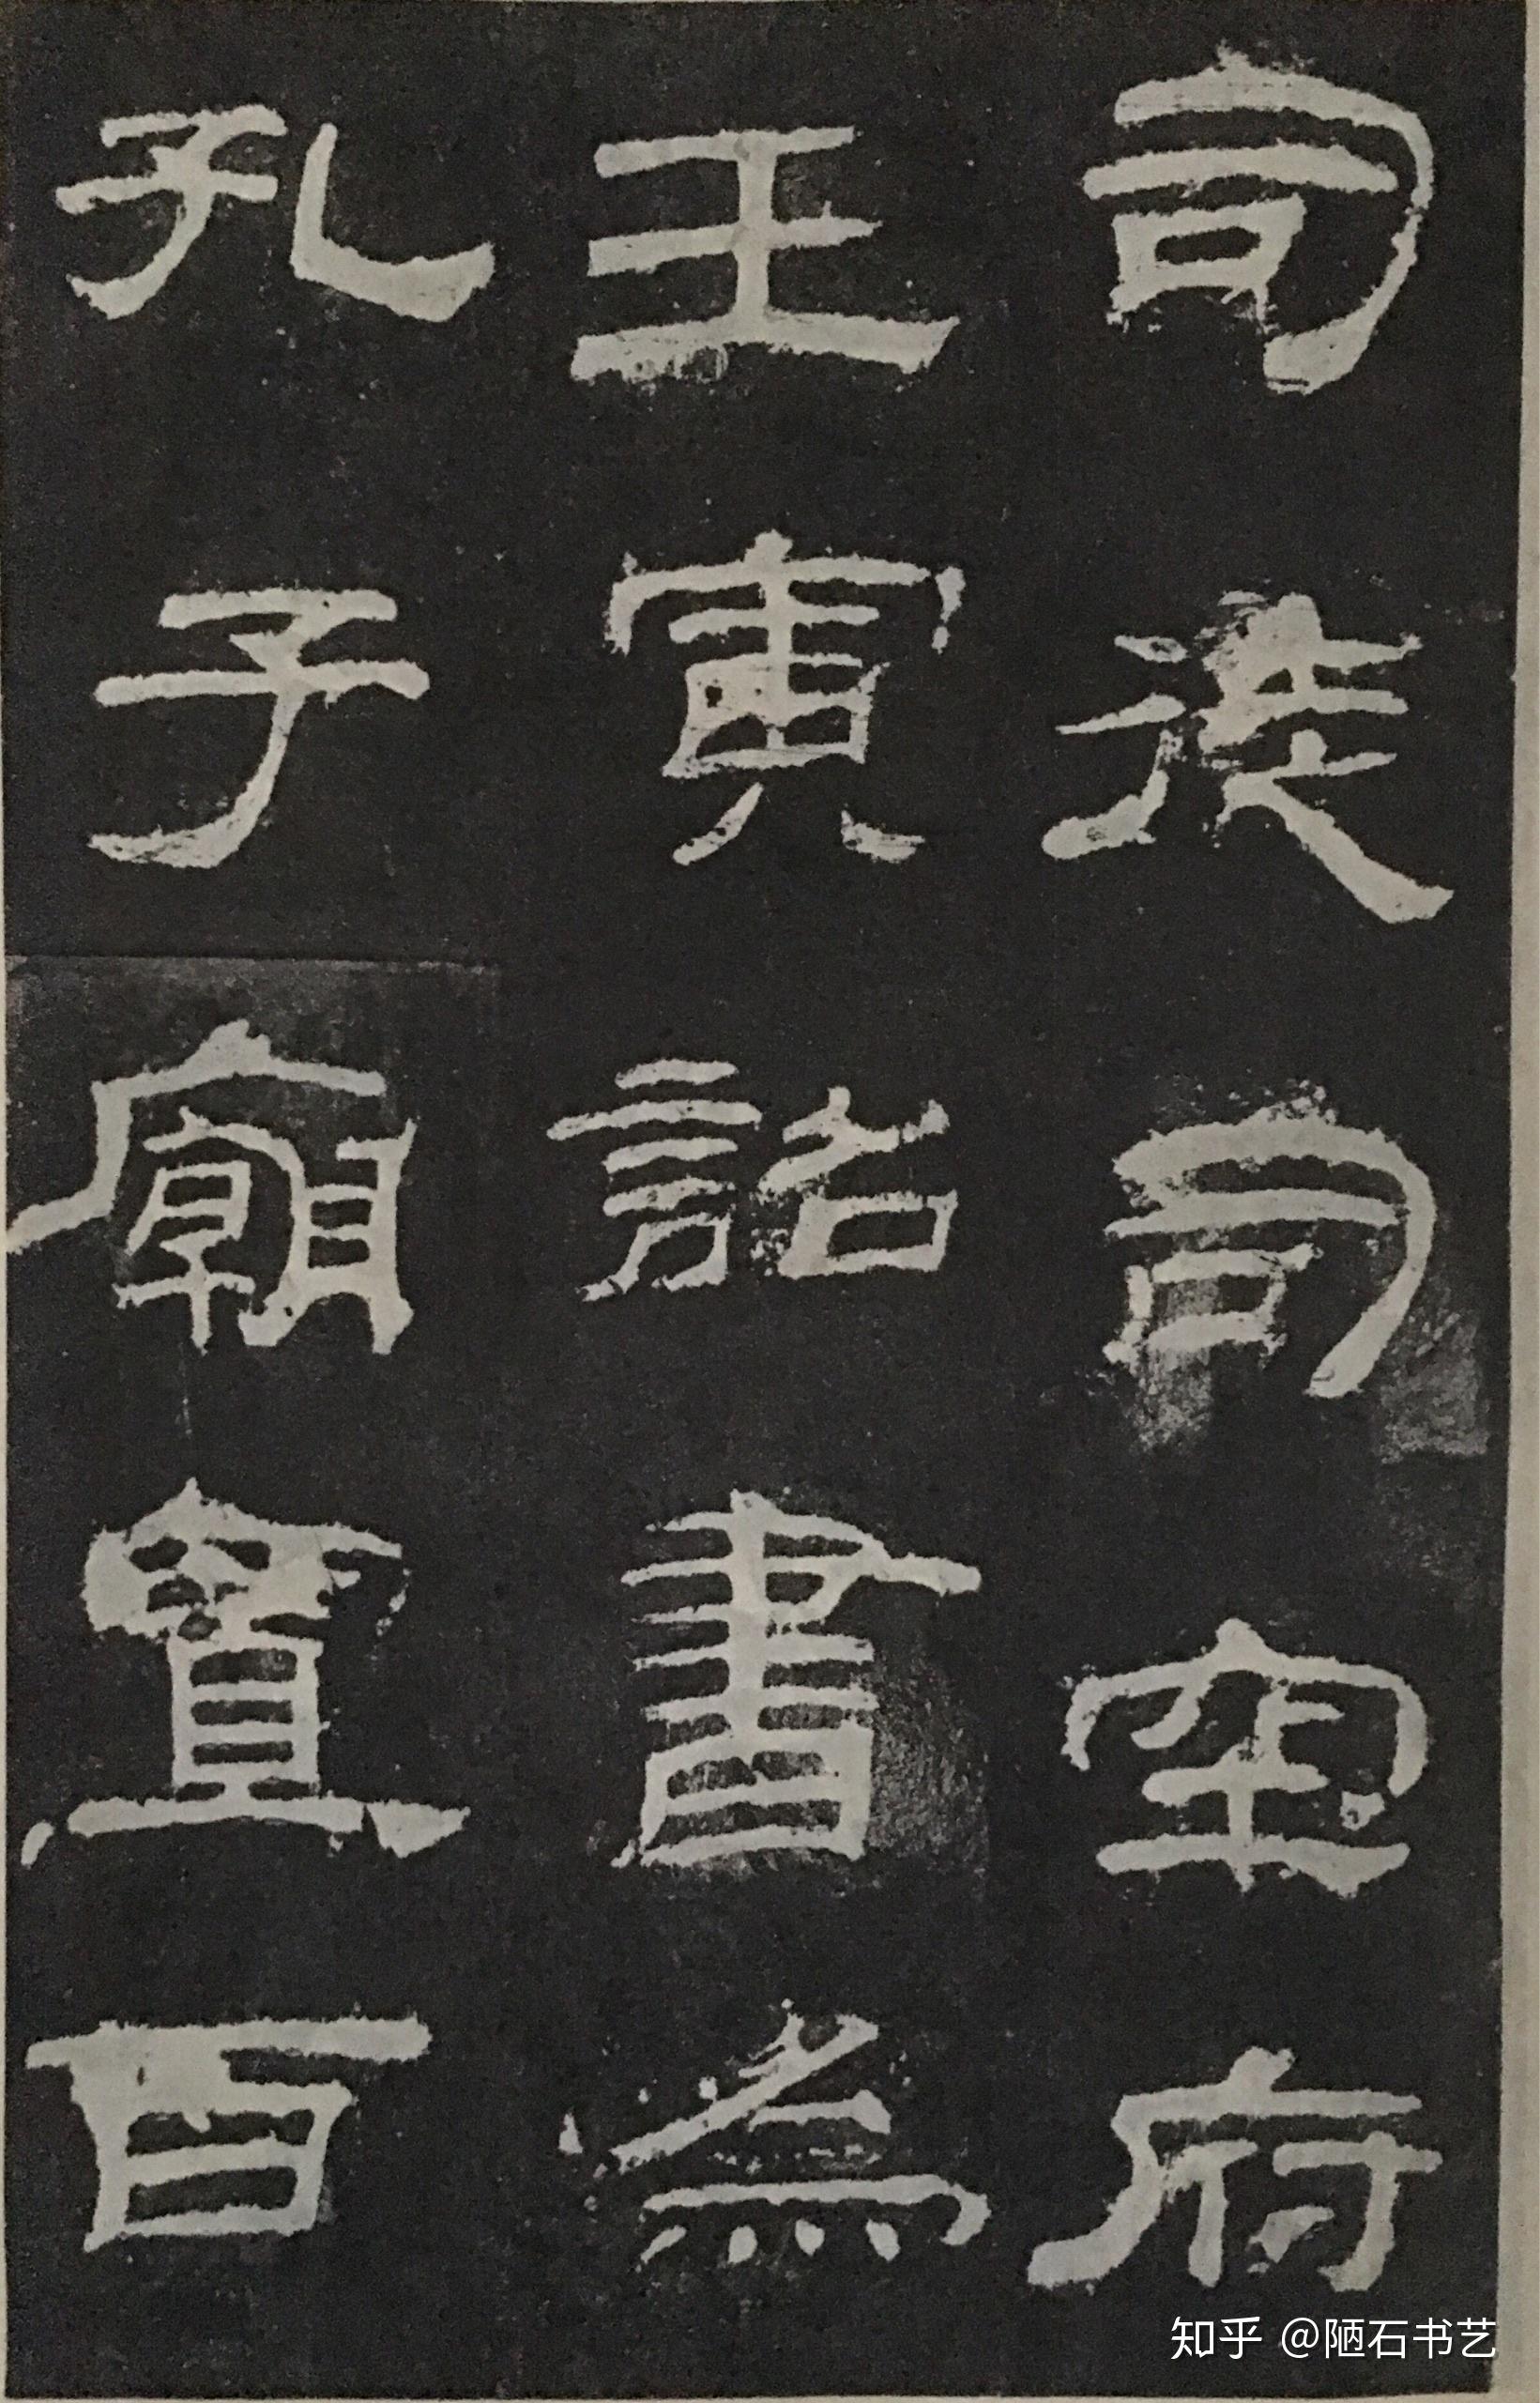 司徒司空府
壬寅詔書為
孔子廟置百
知乎 @陋石书艺